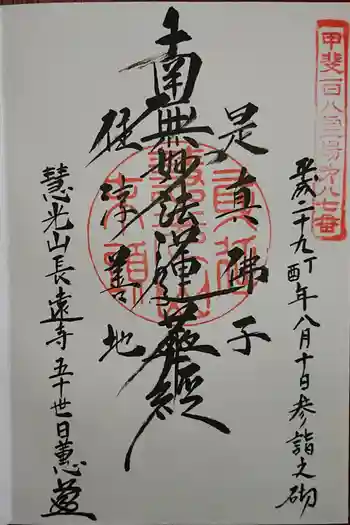 甲斐百八霊場第八七番
平成二十九丁酉年八月十日参詣之砌
是真佛子
南無妙法蓮華経
住淳善地
慧光山長遠寺五十世日慧